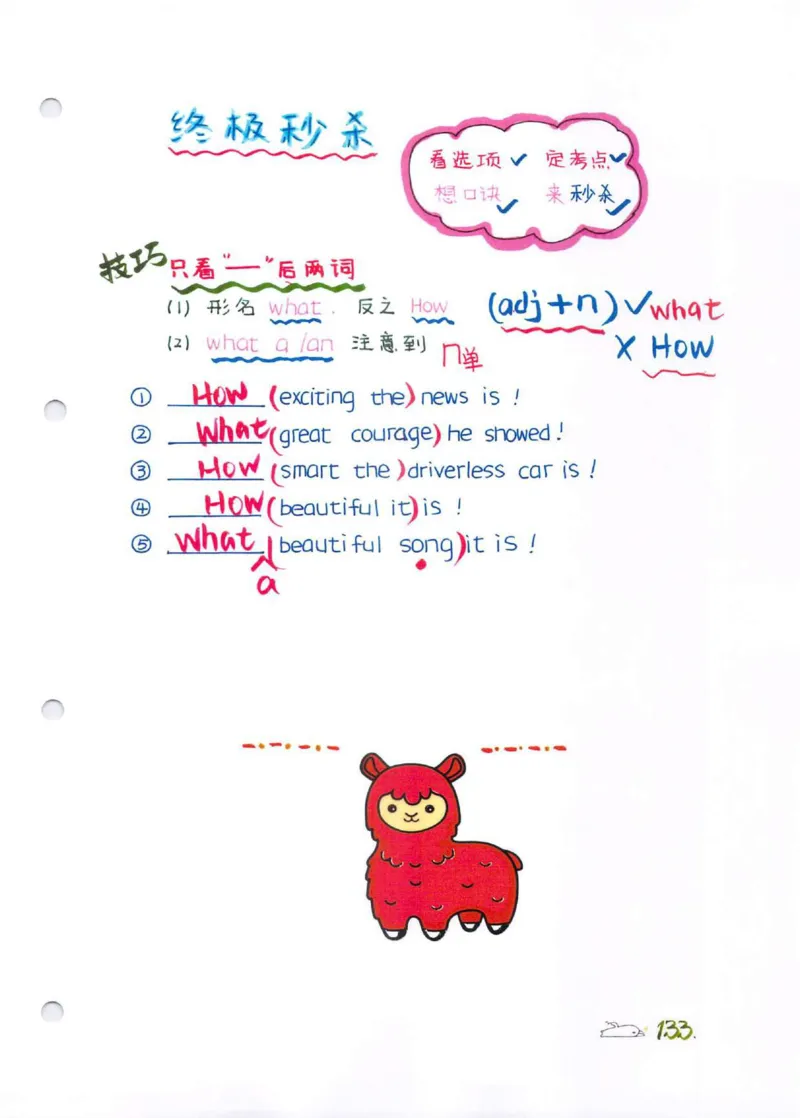 终极秒杀
看选项 ✓ 定考点 ✓
想口诀 ✓ 来秒杀 ✓
技巧 只看"—"后两词
(1) 形名 what. 反之 How
(adj+n) ✓ what
× How
(2) what a /an 注意到 n单
① How (exciting the) news is !
② What (great courage) he showed!
③ How (smart the) driverless car is !
④ How (beautiful it) is !
⑤ What a (beautiful song) it is !
133.